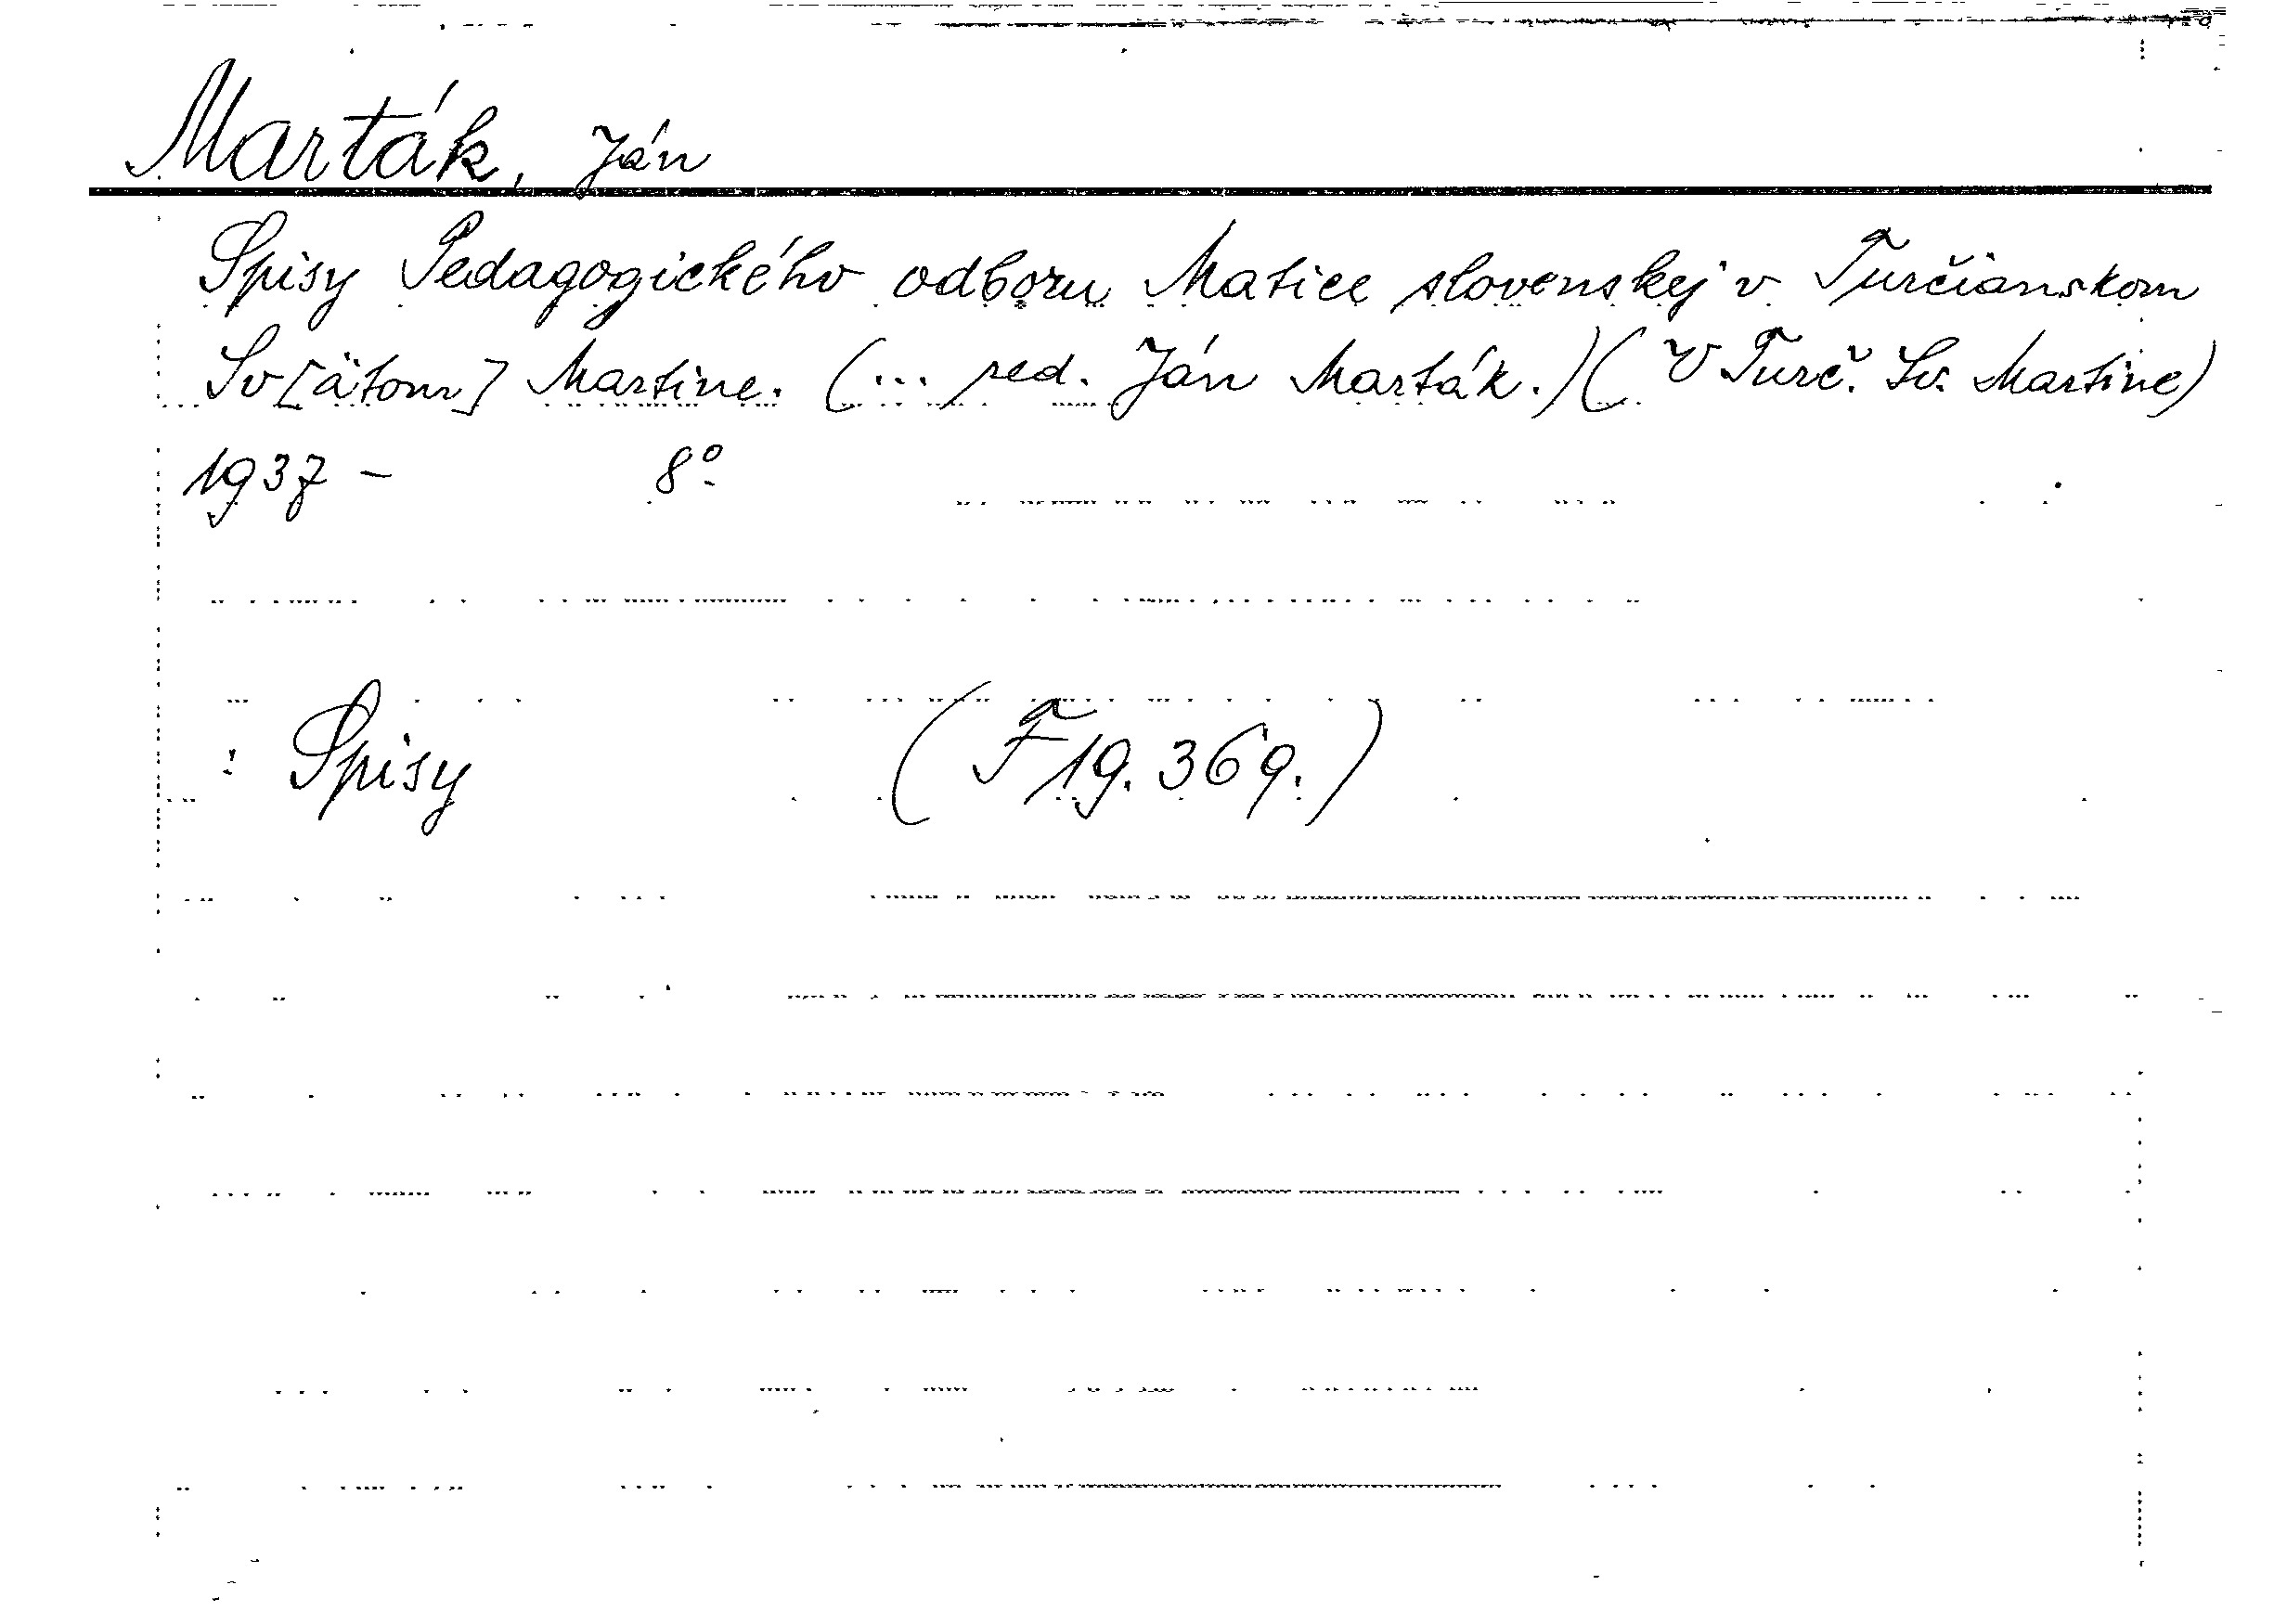 Marták, Ján
Spisy Pedagogického odboru Matice slovenskej v Turčianskom
Sv[ätom] Martine. (... red. Ján Marták.) ( V Turč. Sv. Martine)
1937 – 8º
: Spisy (F 19.369.)